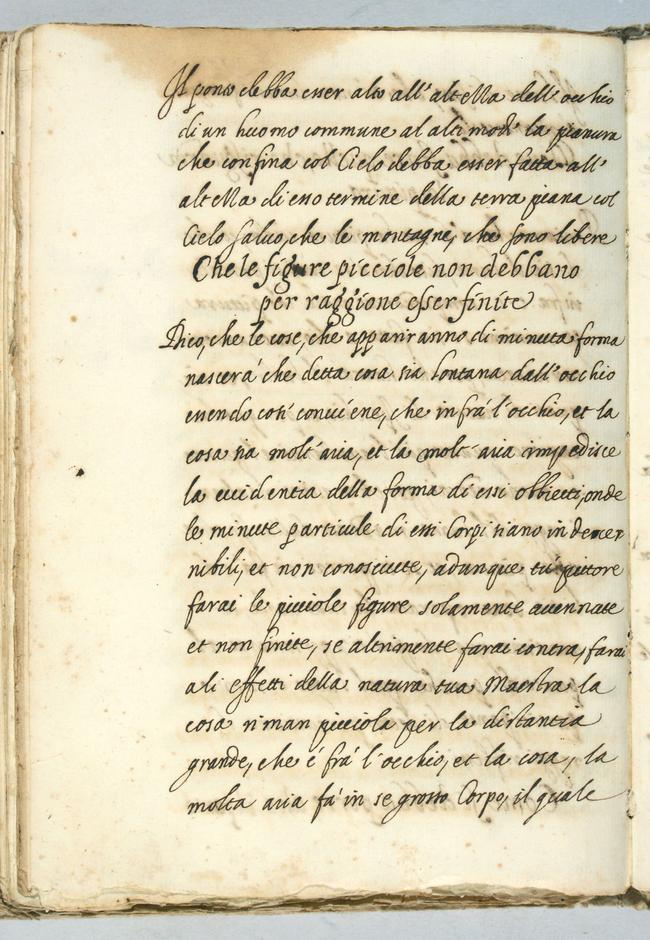 Il ponto debba esser alto all'altezza dell'occhio
di un huomo commune al alti modi la pianura
che confina col Cielo debba esser fatta all'
altezza di esso termine della terra piana col
Cielo salvo, che le montagne, che sono libere
Che le figure picciole non debbano
per raggione esser finite
Dico, che le cose, che appariranno di minuta forma
nascerà che detta cosa sia lontana dall'occhio
essendo così conviene, che infrà l'occhio, et la
cosa sia molt'aria, et la molt'aria impedisce
la evidentia della forma di essi obbietti, onde
le minute particule di essi Corpi siano indescer
nibili, et non conosciute, adunque tù pittore
farai le picciole figure solamente accennate
et non finite, se altrimente farai contra, farai
ali effetti della natura tua Maestra la
cosa riman picciola per la distantia
grande, che è frà l'occhio, et la cosa, la
molta aria fà in se grosso Corpo, il quale